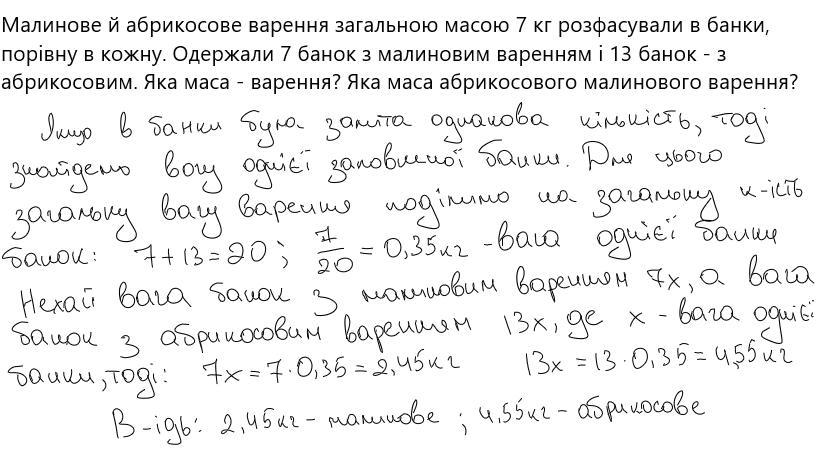 Малинове й абрикосове варення загальною масою 7 кг розфасували в банки,
порівну в кожну. Одержали 7 банок з малиновим варенням і 13 банок - з
абрикосовим. Яка маса - варення? Яка маса абрикосового малинового варення?
Якщо в банки була заліта однакова кількість, тоді
знайдемо вагу однієї заповненої банки. Для цього
загальну вагу варення поділимо на загальну к-ість
банок: 7+13=20; 7/20 = 0,35кг - вага однієї банки
Нехай вага банок з малиновим варенням 7x, а вага
банок з абрикосовим варенням 13x, де x - вага однієї
банки, тоді: 7x = 7·0,35 = 2,45кг 13x = 13·0,35 = 4,55кг
В-ідь: 2,45кг - малинове ; 4,55кг - абрикосове